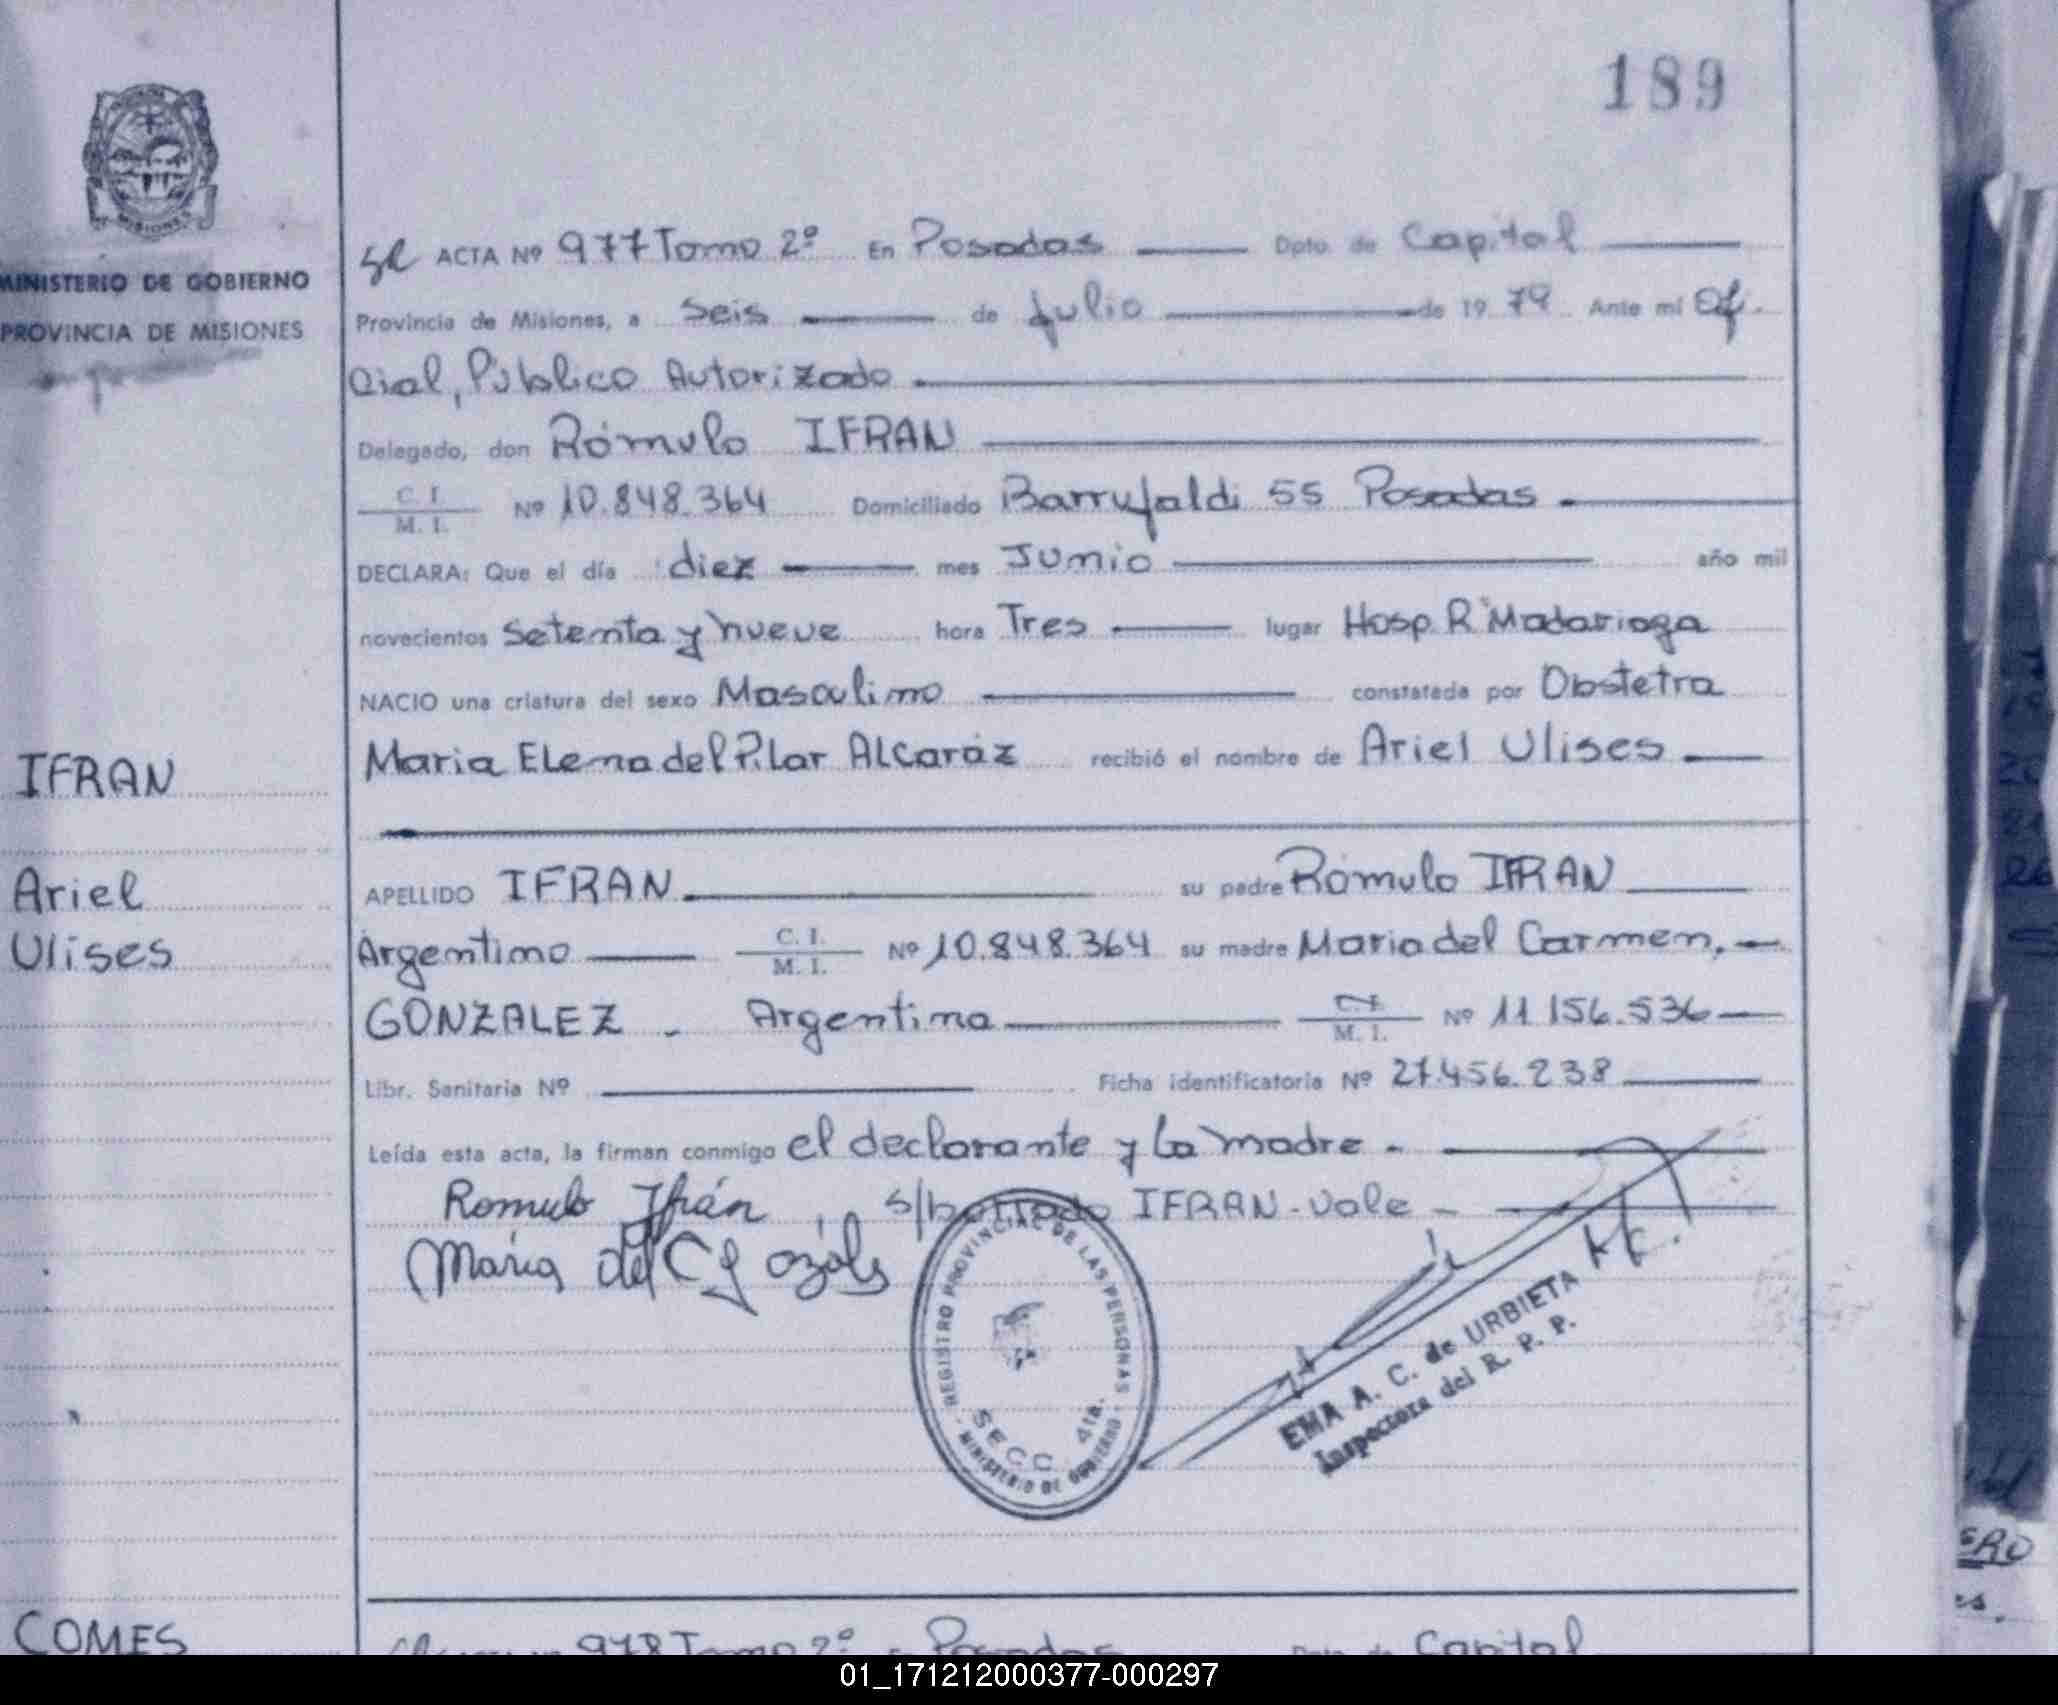 189
MISIONES
MINISTERIO DE GOBIERNO
PROVINCIA DE MISIONES
ACTA Nº 977 Tomo 2º En Posadas Dpto. de Capital
Provincia de Misiones, a seis de Julio de 1979 Ante mí Ofi-
cial, Público Autorizado
Delegado, don Rómulo IFRAN
C. I. / M. I. Nº 10.848.364 Domiciliado Barrufaldi 55 Posadas
DECLARA: Que el día diez mes Junio año mil
novecientos setenta y nueve hora Tres lugar Hosp. R. Madariaga
NACIO una criatura del sexo Masculino constatada por Obstetra
Maria Elena del Pilar Alcaráz recibió el nombre de Ariel Ulises
IFRAN
Ariel
Ulises
APELLIDO IFRAN su padre Rómulo IFRAN
Argentino C. I. / M. I. Nº 10.848.364 su madre Maria del Carmen,
GONZALEZ - Argentina C. I. / M. I. Nº 11.156.536
Libr. Sanitaria Nº Ficha identificatoria Nº 27.456.238
Leída esta acta, la firman conmigo el declarante y la madre -
Romulo Ifrán s/borrado IFRAN - Vale -
Maria del C
REGISTRO PROVINCIAL DE LAS PERSONAS
SECC 4ta.
MINISTERIO DE GOBIERNO
EMA A. C. de URBIETA
Inspectora del R. P. P.
COMES
978 Tomo 2º Posadas Dpto. de Capital
01_171212000377-000297